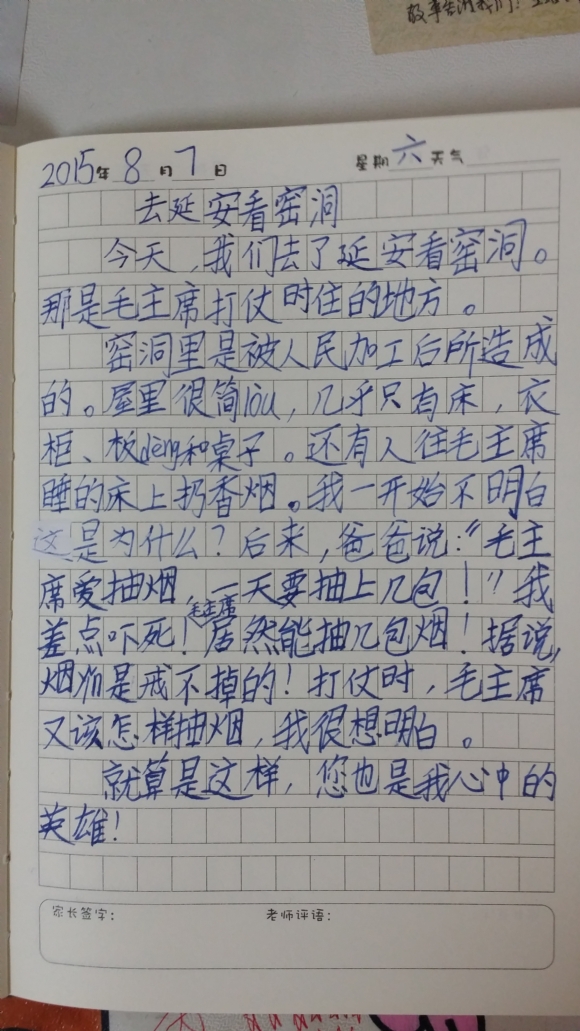 故事告诉我们！
2015年 8 月 7 日 星期 六 天气
去延安看窑洞
今天，我们去了延安看窑洞。
那是毛主席打仗时住的地方。
窑洞里是被人民加工后所造成
的。屋里很简lòu，几乎只有床，衣
柜、板dèng和桌子。还有人往毛主席
睡的床上扔香烟。我一开始不明白
这是为什么？后来，爸爸说：“毛主
席爱抽烟，一天要抽上几包！”我
差点吓死！毛主席居然能抽几包烟！据说，
烟yǐn是戒不掉的！打仗时，毛主席
又该怎样抽烟，我很想明白。
就算是这样，您也是我心中的
英雄！
家长签字： 老师评语：